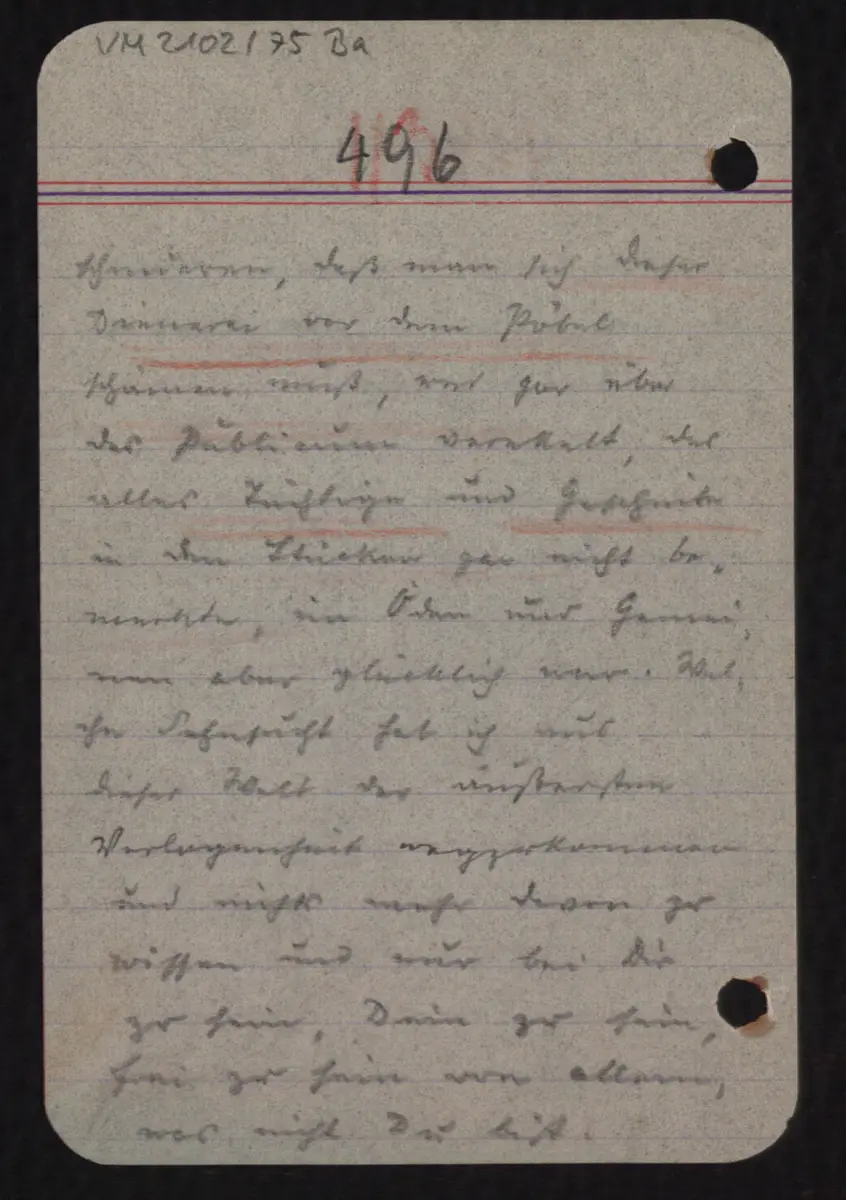 VM 2102/75 Ba
496
daß man sich dieser
Dienerei vor dem Pöbel
schämen muß, was gar über
das Publicum verekelt, das
alles Tüchtige und Gescheite
in den Stücken gar nicht be-
merkte, im Öden und Gemei-
nen aber glücklich war. Wel-
che Sehnsucht hab ich aus
dieser Welt der äußersten
Verlogenheit wegzukommen
und nichts mehr davon zu
wissen und nur bei Dir
zu sein, Dein zu sein,
frei zu sein von allem,
was nicht Du bist.